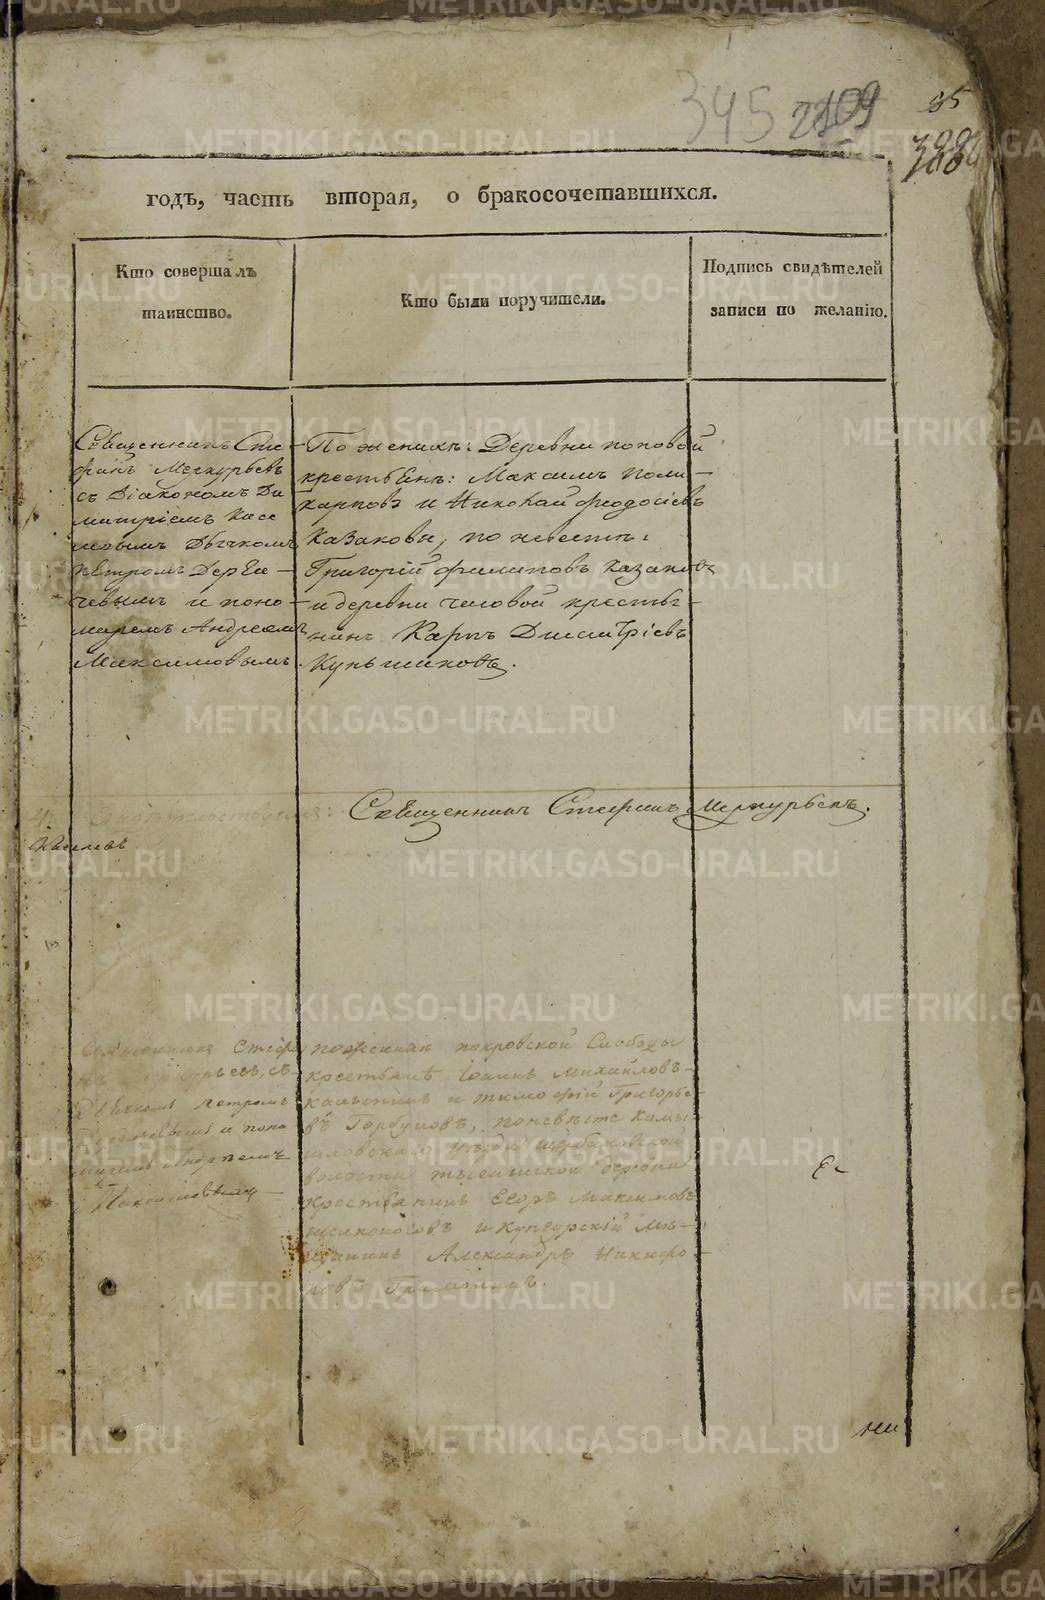 345 2109 85
годъ, часть вторая, о бракосочетавшихся.
Кто совершалъ
таинство.
Кто были поручители.
Подпись свидѣтелей
записи по желанію.
Священникъ Сте-
фанъ Меркурьевъ
съ Діакономъ Ди
митріемъ
Дьячкомъ
Петромъ Дерга-
чевымъ и поно-
маремъ Андреемъ
Максимовымъ.
По женихѣ: Деревни поповой
крестьянъ: Максимъ Поли-
карповъ и Николай Феодосіевъ
Казаковы, по невестѣ:
Григорій Филиповъ Казаковъ
и деревни чесовой крестья-
нинъ Карпъ Димитріевъ
Священникъ Стефанъ Меркурьевъ.
Священникъ Стефа
нъ Меркурьевъ, съ
Дьячкомъ Петромъ
Дергачевымъ и поно
маремъ Андреемъ
Максимовымъ
по женихѣ покровской Слободы
крестьянѣ Іоаннъ Михайловъ
и тимофій Григорье-
въ Горбуновъ, по невѣсте Камы-
шловскаго уѣзда щербаковской
волости деревни
крестьянинъ Егоръ Максимовъ
и Кунгурскій мѣ-
щанинъ Александръ Никифо-
ровъ
METRIKI.GASO-URAL.RU